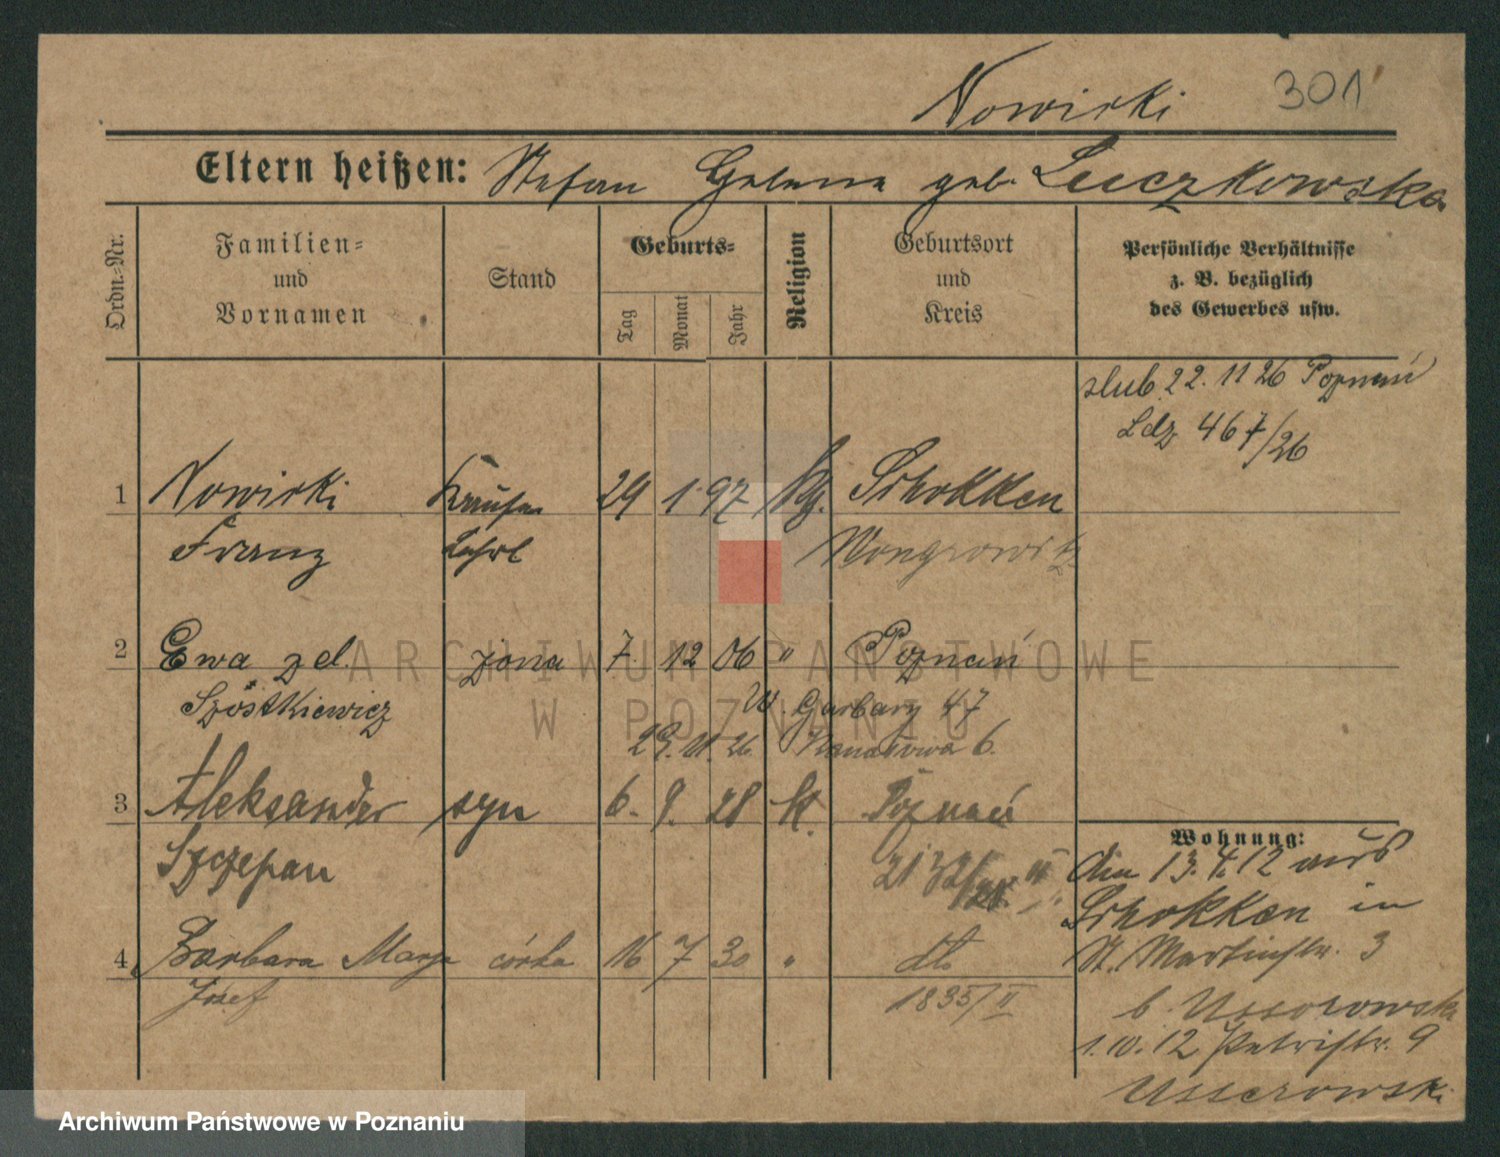 Nowicki 301
Eltern heißen: Stefan Helena geb. Luczkowska
Ordn.-Nr.
Familien-
und
Vornamen
Stand
Geburts-
Tag
Monat
Jahr
Religion
Geburtsort
und
Kreis
Persönliche Verhältnisse
z. B. bezüglich
des Gewerbes usw.
slub 22. 11 26 Poznań
Ldz 467/26
1 Nowicki Kaufm. 29 1. 97 Schokken
Franz Lehrl Wongrowitz
2 Ewa z d. żona 7. 12 06 " Poznań
Szóstkiewicz W. Garbary 47
29. 11. 26 6.
3 Aleksander syn 6. 9. 28 k. Poznań
Szczepan
4 Barbara Marja córka 16 7 30 " dto
Józef 1835/II
Wohnung:
den 13. 4. 12 aus
Schokken in
St. Martinstr. 3
b. Ussorowska
1. 10. 12 Petristr. 9
Ussorowski
ARCHIWUM PAŃSTWOWE
W POZNANIU
Archiwum Państwowe w Poznaniu